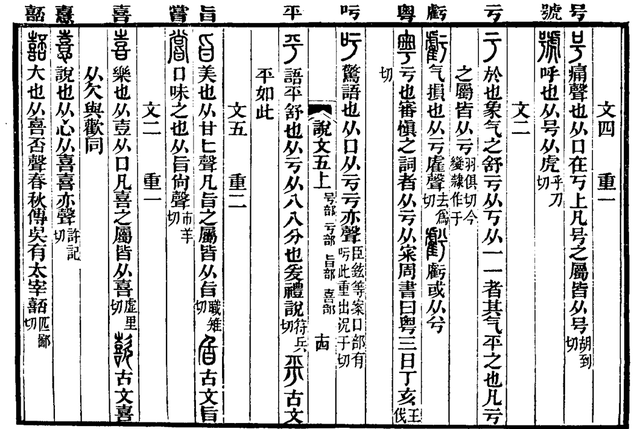 号
号痛聲也从口在丂上凡号之屬皆从号胡到切
號
號呼也从号从虎乎刀切
文四 重一
文二
亏
亏於也象气之舒亏从丂从一一者其气平之也凡亏
之屬皆从亏羽俱切今變隸作于
虧
虧气損也从亏雐聲去為切虧虧或从兮
粤
粤亏也審慎之詞者从亏从宷周書曰粤三日丁亥王伐切
吁
吁驚語也从口从亏亏亦聲臣鉉等案口部有吁此重出況于切
說文五上 号部 亏部 旨部 喜部 古
平
平語平舒也从亏从八八分也爰禮說符兵切平古文
平如此
文五 重二
旨
旨美也从甘匕聲凡旨之屬皆从旨職雉切旨古文旨
嘗
嘗口味之也从旨尚聲市羊切
文二 重一
喜
喜樂也从壴从口凡喜之屬皆从喜虛里切歖古文喜
从欠與歡同
憙
憙說也从心从喜喜亦聲許記切
嚭
嚭大也从喜否聲春秋傳吳有太宰嚭匹鄙切